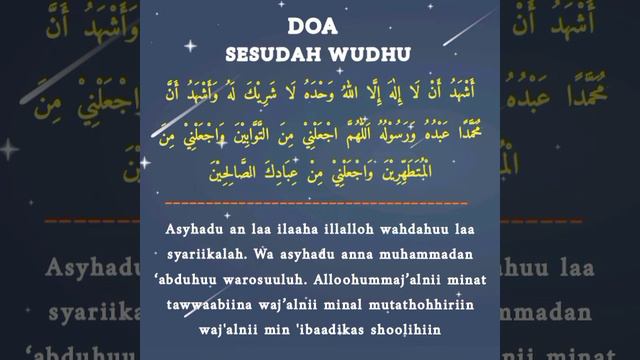 DOA
SESUDAH WUDHU
أَشْهَدُ أَنْ لَا إِلٰهَ إِلَّا اللّٰهُ وَحْدَهُ لَا شَرِيْكَ لَهُ وَأَشْهَدُ أَنَّ
مُحَمَّدًا عَبْدُهُ وَرَسُوْلُهُ اَللّٰهُمَّ اجْعَلْنِيْ مِنَ التَّوَّابِيْنَ وَاجْعَلْنِيْ مِنَ
الْمُتَطَهِّرِيْنَ وَاجْعَلْنِيْ مِنْ عِبَادِكَ الصَّالِحِيْنَ
Asyhadu an laa ilaaha illalloh wahdahuu laa
syariikalah. Wa asyhadu anna muhammadan
‘abduhuu warosuuluh. Alloohummaj’alnii minat
tawwaabiina waj’alnii minal mutathohhiriin
waj'alnii min 'ibaadikas shoolihiin